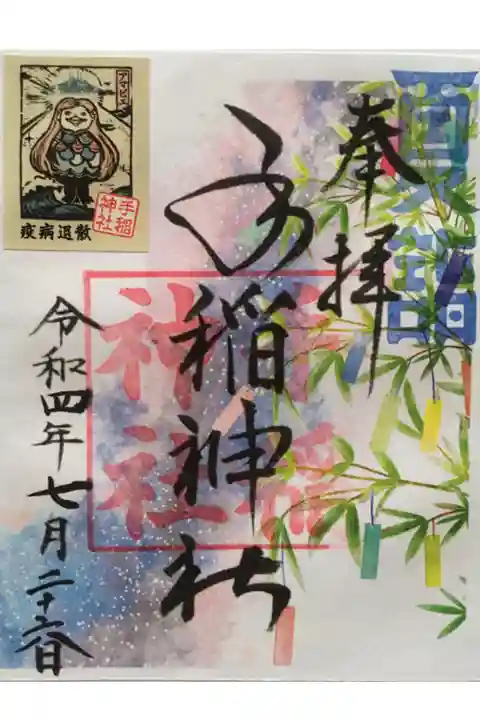 夏詣
奉拝
手稲神社
手稲
神社
令和四年七月二十六日
アマビエ
手稲
神社
疫病退散